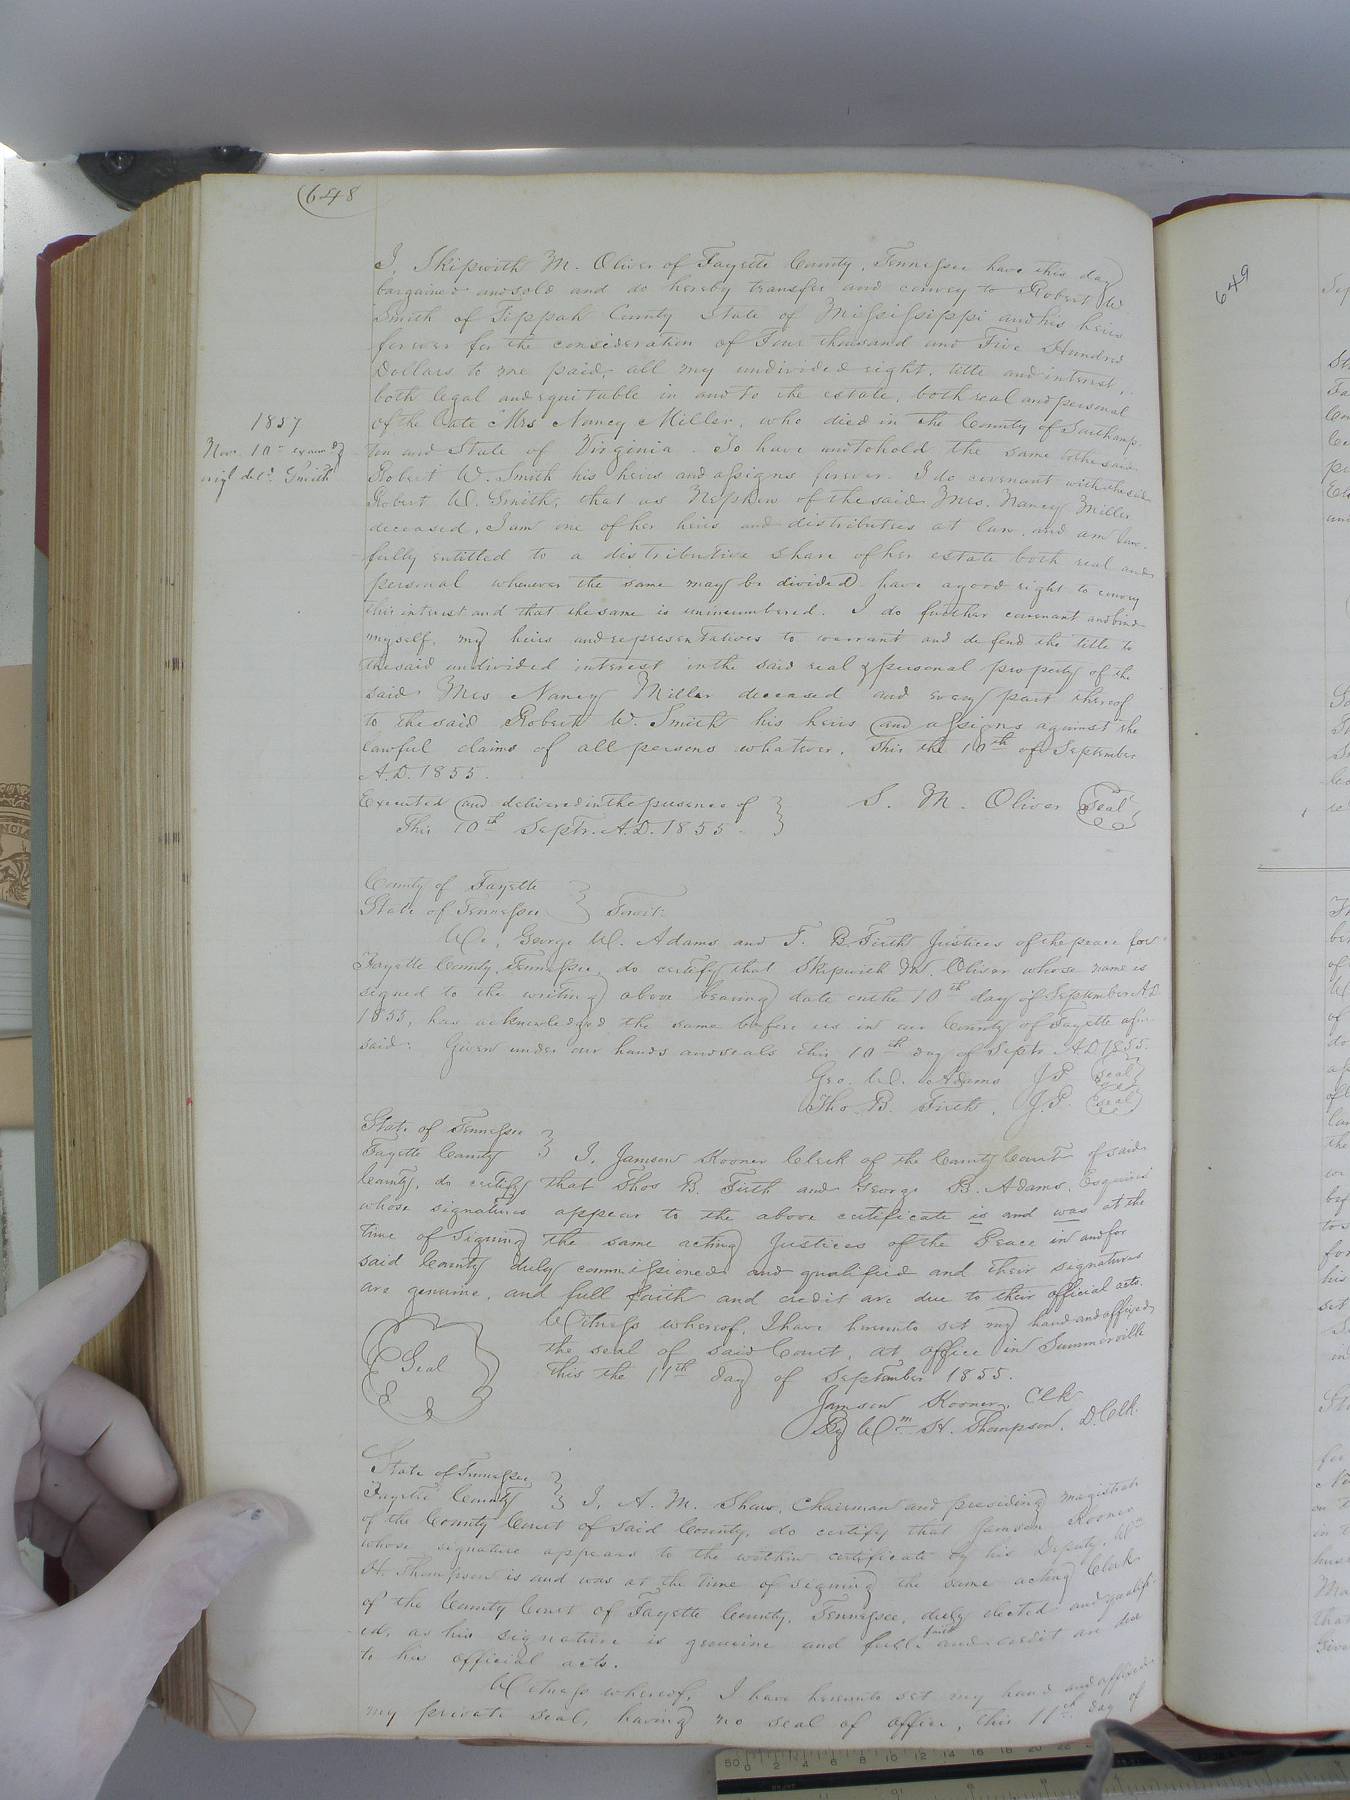 648
I, Skipwith M. Oliver of Fayette County, Tennessee have this day
bargained and sold and do hereby transfer and convey to Robert W
Smith of Tippah County State of Mississippi and his heirs
forever for the consideration of Four thousand and Five Hundred
Dollars to me paid, all my undivided right, title and interest,
both legal and equitable in and to the estate, both real and personal
of the late Mrs Nancy Miller, who died in the County of Southamp-
ton and State of Virginia. To have and to hold the same to the said
Robert W. Smith his heirs and assigns forever. I do covenant with the said
Robert W. Smith, that as Nephew of the said Mrs. Nancy Miller
deceased, I am one of her heirs and distributees at law, and am law-
fully entitled to a distributive share of her estate both real and
personal whenever the same may be divided have a good right to convey
this interest and that the same is unincumbered. I do further covenant and bind
myself, my heirs and representatives to warrant and defend the title to
the said undivided interest in the said real & personal property of the
said Mrs Nancy Miller deceased and every part thereof
to the said Robert W. Smith his heirs and assigns against the
lawful claims of all persons whatever. This the 10th of September
A.D. 1855.
1857
Nov. 10th examd
Smith
Executed and delivered in the presence of } S. M. Oliver Seal
This 10th Septr. A.D. 1855.
County of Fayette
State of Tennessee } Towit:
We, George W. Adams and T. B. Firth Justices of the peace for
Fayette County, Tennessee, do certify that Skipwith M. Oliver whose name is
signed to the writing above bearing date on the 10th day of September A.D
1855, has acknowledged the same before us in our County of Fayette afore
said. Given under our hands and seals this 10th day of Septr A.D. 1855.
Geo. W. Adams J.P. Seal
Tho. B. Firth, J.P. Seal
State of Tennessee
Fayette County } I, Jamson Kooner Clerk of the County Court of said
County, do certify that Thos B. Firth and George B. Adams, Esquires
whose signatures appear to the above certificate is and was at the
time of signing the same acting Justices of the Peace in and for
said County duly commissioned and qualified and their signatures
are genuine, and full faith and credit are due to their official acts.
Witness whereof, I have hereunto set my hand and affixed
the seal of said Court, at office in Summerville
this the 11th day of September 1855.
Seal
Jamson Kooner, Clk
By Wm H. Thompson, D. Clk.
State of Tennessee
Fayette County } I, A. M. Shaw, Chairman and presiding magistrate
of the County Court of said County, do certify that Jamson Kooner
whose signature appears to the within certificate by his Deputy, Wm
H. Thompson is and was at the time of signing the same acting Clerk
of the County Court of Fayette County, Tennessee, duly elected and qualifi-
ed, as his signature is genuine and full faith and credit are due
to his official acts.
Witness whereof, I have hereunto set my hand and affixed
my private seal, having no seal of office, this 11th day of
649